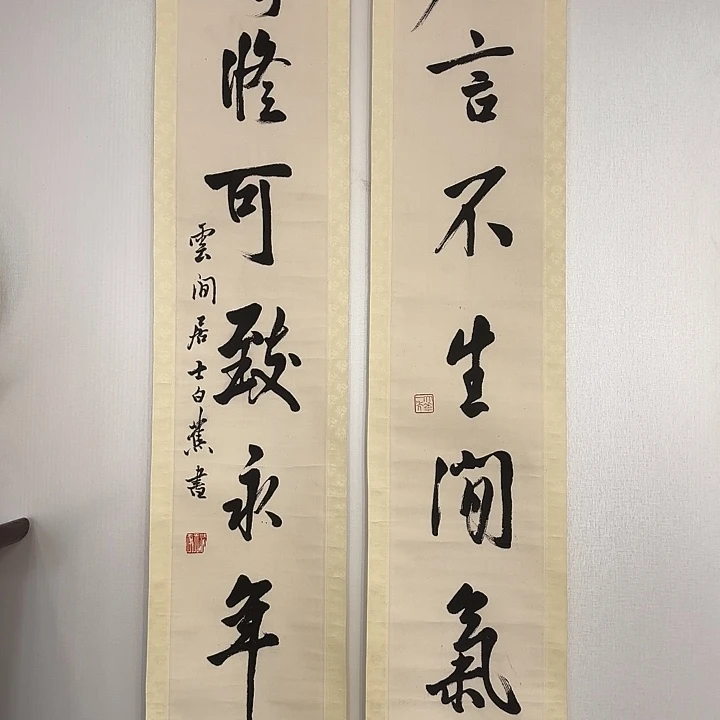 言不生閒氣
修可致永年
雲間居士白蕉書